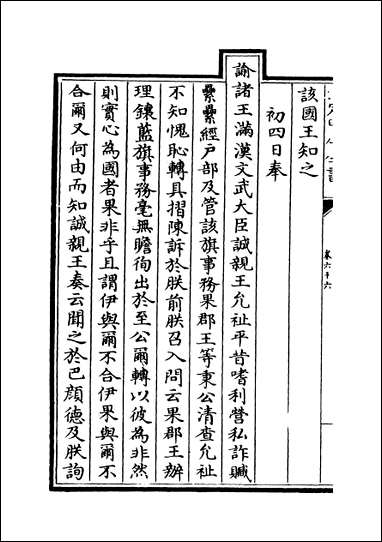 該國王知之
初四日奉
諭諸王滿漢文武大臣誠親王允祉平昔嗜利營私詐贓
纍纍經户部及管該旗事務果郡王等秉公清查允祉
不知愧恥轉具摺陳訴於朕前朕召入問云果郡王辦
理鑲藍旗事務毫無瞻徇出於至公爾轉以彼為非然
則實心為國者果非乎且謂伊與爾不合伊果與爾不
合爾又何由而知誠親王奏云聞之於巴顔德及朕詢
卷六十六